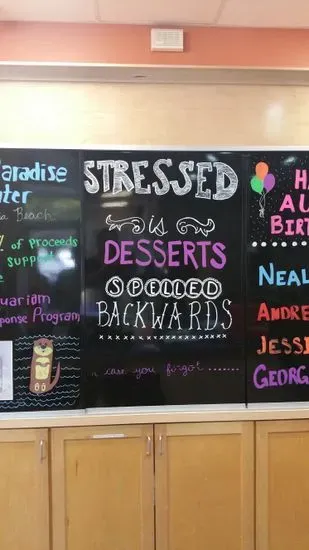 Paradise
ter
a Beach
% of proceeds
support
quarium
sponse Program
STRESSED
is
DESSERTS
SPELLED
BACKWARDS
case you forgot.......
H
AU
BIRT
NEAL
ANDRE
JESSI
GEORG